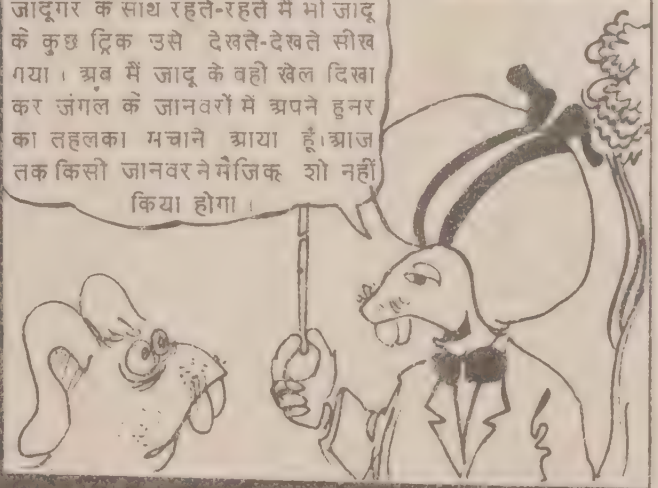 जादूगर के साथ रहते-रहते मैं भी जादू
के कुछ ट्रिक उसे देखते-देखते सीख
गया। अब मैं जादू के वही खेल दिखा
कर जंगल के जानवरों में अपने हुनर
का तहलका मचाने आया हूँ।आज
तक किसी जानवर ने मैजिक शो नहीं
किया होगा।